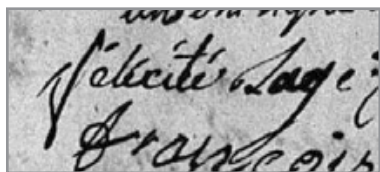 félicité Sage
françois